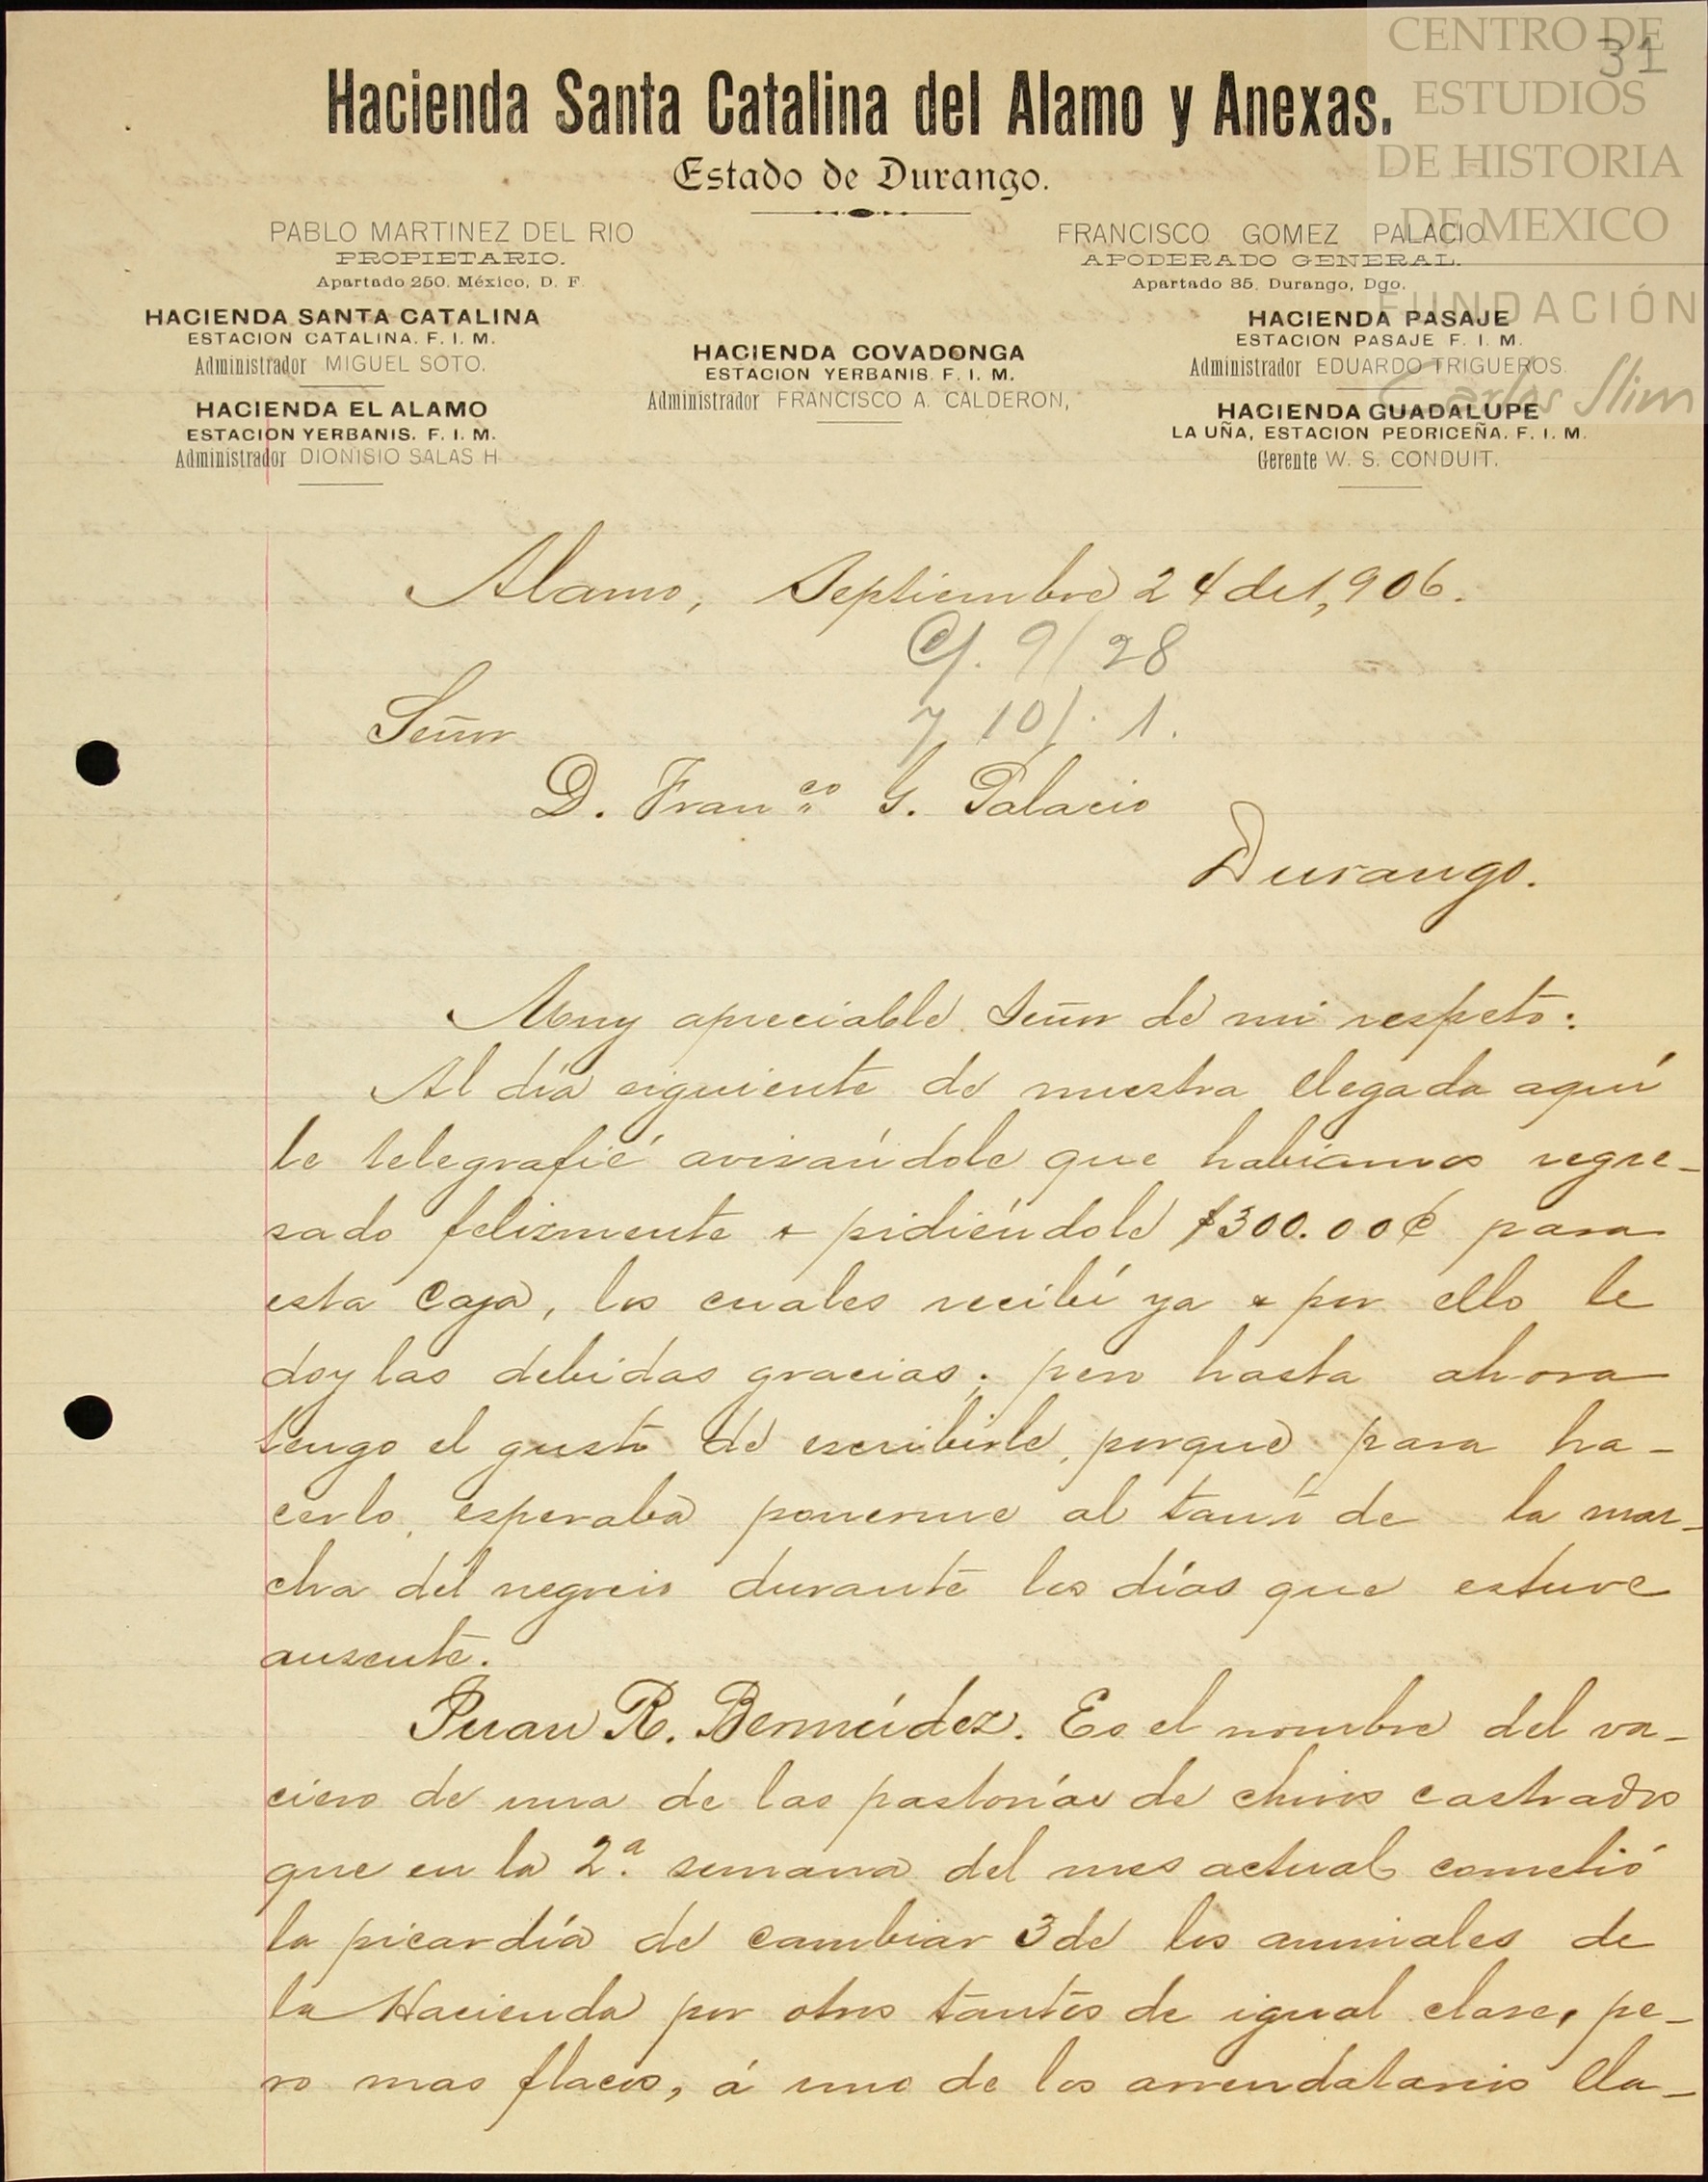 CENTRO DE
ESTUDIOS
DE HISTORIA
DE MEXICO
FUNDACIÓN
Carlos Slim
31
Hacienda Santa Catalina del Alamo y Anexas.
Estado de Durango.
PABLO MARTINEZ DEL RIO
PROPIETARIO.
Apartado 250. México, D. F.
FRANCISCO GOMEZ PALACIO
APODERADO GENERAL.
Apartado 85. Durango, Dgo.
HACIENDA SANTA CATALINA
ESTACION CATALINA. F. I. M.
Administrador MIGUEL SOTO.
HACIENDA EL ALAMO
ESTACION YERBANIS. F. I. M.
Administrador DIONISIO SALAS H
HACIENDA COVADONGA
ESTACION YERBANIS. F. I. M.
Administrador FRANCISCO A. CALDERON,
HACIENDA PASAJE
ESTACION PASAJE F. I. M.
Administrador EDUARDO TRIGUEROS.
HACIENDA GUADALUPE
LA UÑA, ESTACION PEDRICEÑA. F. I. M.
Gerente W. S. CONDUIT.
Alamo, Septiembre 24 de 1,906.
C/. 9/28
y 10/. 1.
Señor
D. Fran.co G. Palacio
Durango.
Muy apreciable Señor de mi respeto:
Al día siguiente de nuestra llegada aquí
le telegrafié avisándole que habíamos regre-
sado felizmente + pidiéndole $300.00¢ para
esta Caja, los cuales recibí ya + por ello le
doy las debidas gracias; pero hasta ahora
tengo el gusto de escribirle, porque para ha-
cerlo, esperaba ponerme al tanto de la mar-
cha del negocio durante los días que estuve
ausente.
Juan R. Bermúdez. Es el nombre del va-
ciero de una de las pastorías de chivos castrados
que en la 2.ª semana del mes actual cometió
la picardía de cambiar 3 de los animales de
la Hacienda por otros tantos de igual clase, pe-
ro mas flacos, á uno de los arrendatarios lla-